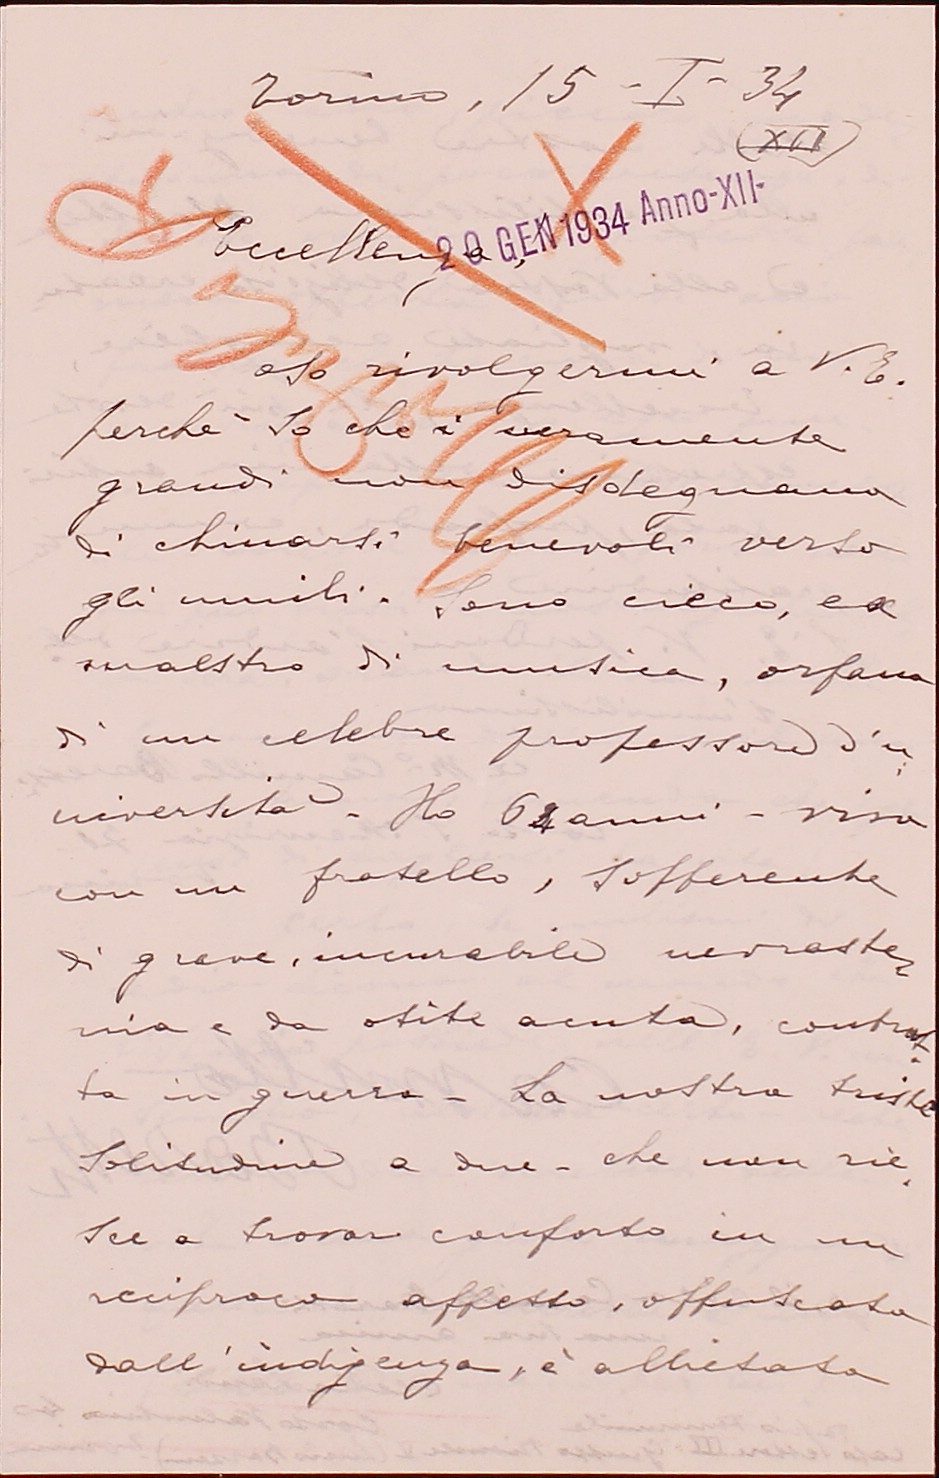 Torino, 15 - I - 34
(XII)
20 GEN 1934 Anno-XII-
Eccellenza,
oso rivolgermi a V. E.
perchè so che i veramente
grandi non disdegnano
di chinarsi benevoli verso
gli umili. Sono cieco, ex
maestro di musica, orfano
di un celebre professore d'u
niversità - Ho 64 anni - vivo
con un fratello, sofferente
di grave, incurabile nevraste
nia e da otite acuta, contrat
ta in guerra - La nostra triste
solitudine a due - che non rie
sce a trovar conforto in un
reciproco affetto, offuscato
dall'indigenza, è allietata